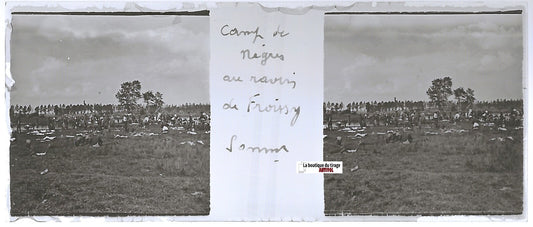 Camp de
Nègres
au ravin
de Froissy
Somme
La boutique du tirage
ARTIPOL